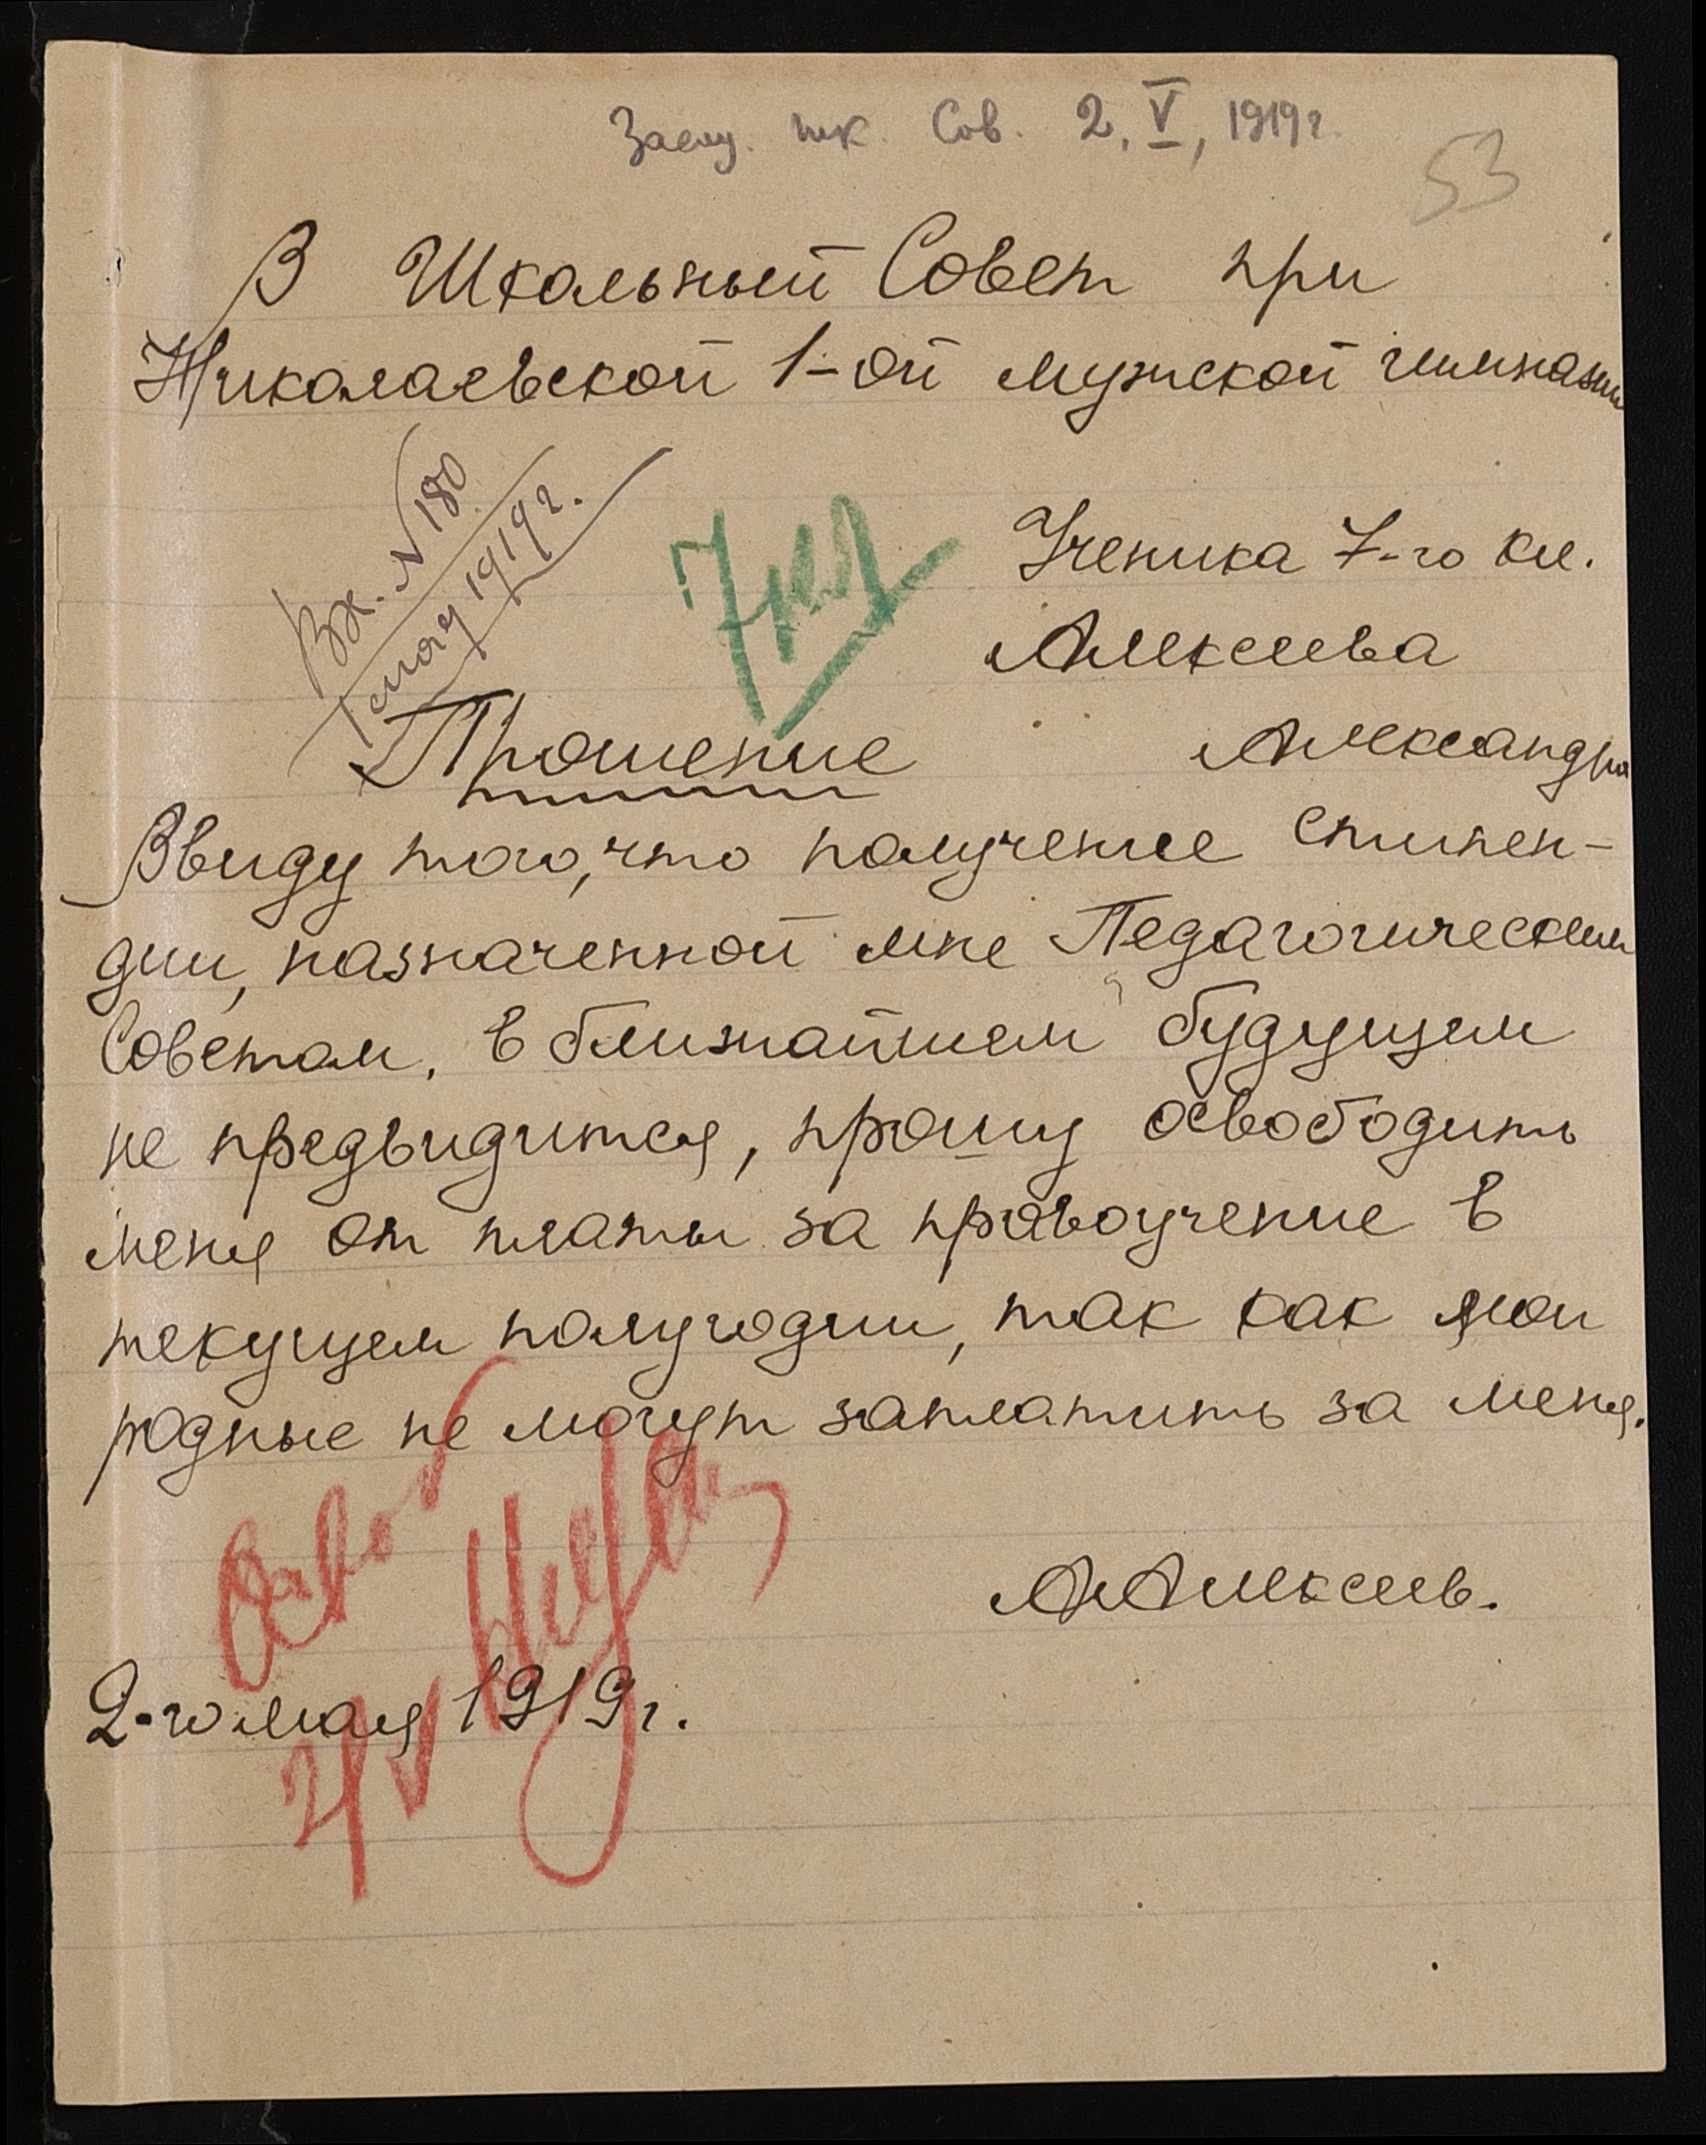 Засед. шк. Сов. 2, V, 1919 г.
53
В Школьный Совет при
Николаевской 1-ой мужской гимназии
Вх. N 180
мая 1919 г.
Ученика 7-го кл.
Алексеева
Александра
Прошение
Ввиду того, что получение стипен-
дии, назначенной мне Педагогическим
Советом, в ближайшем будущем
не предвидится, прошу освободить
меня от платы за правоучение в
текущем полугодии, так как мои
родные не могут заплатить за меня.
А Алексеев.
2-го мая 1919 г.